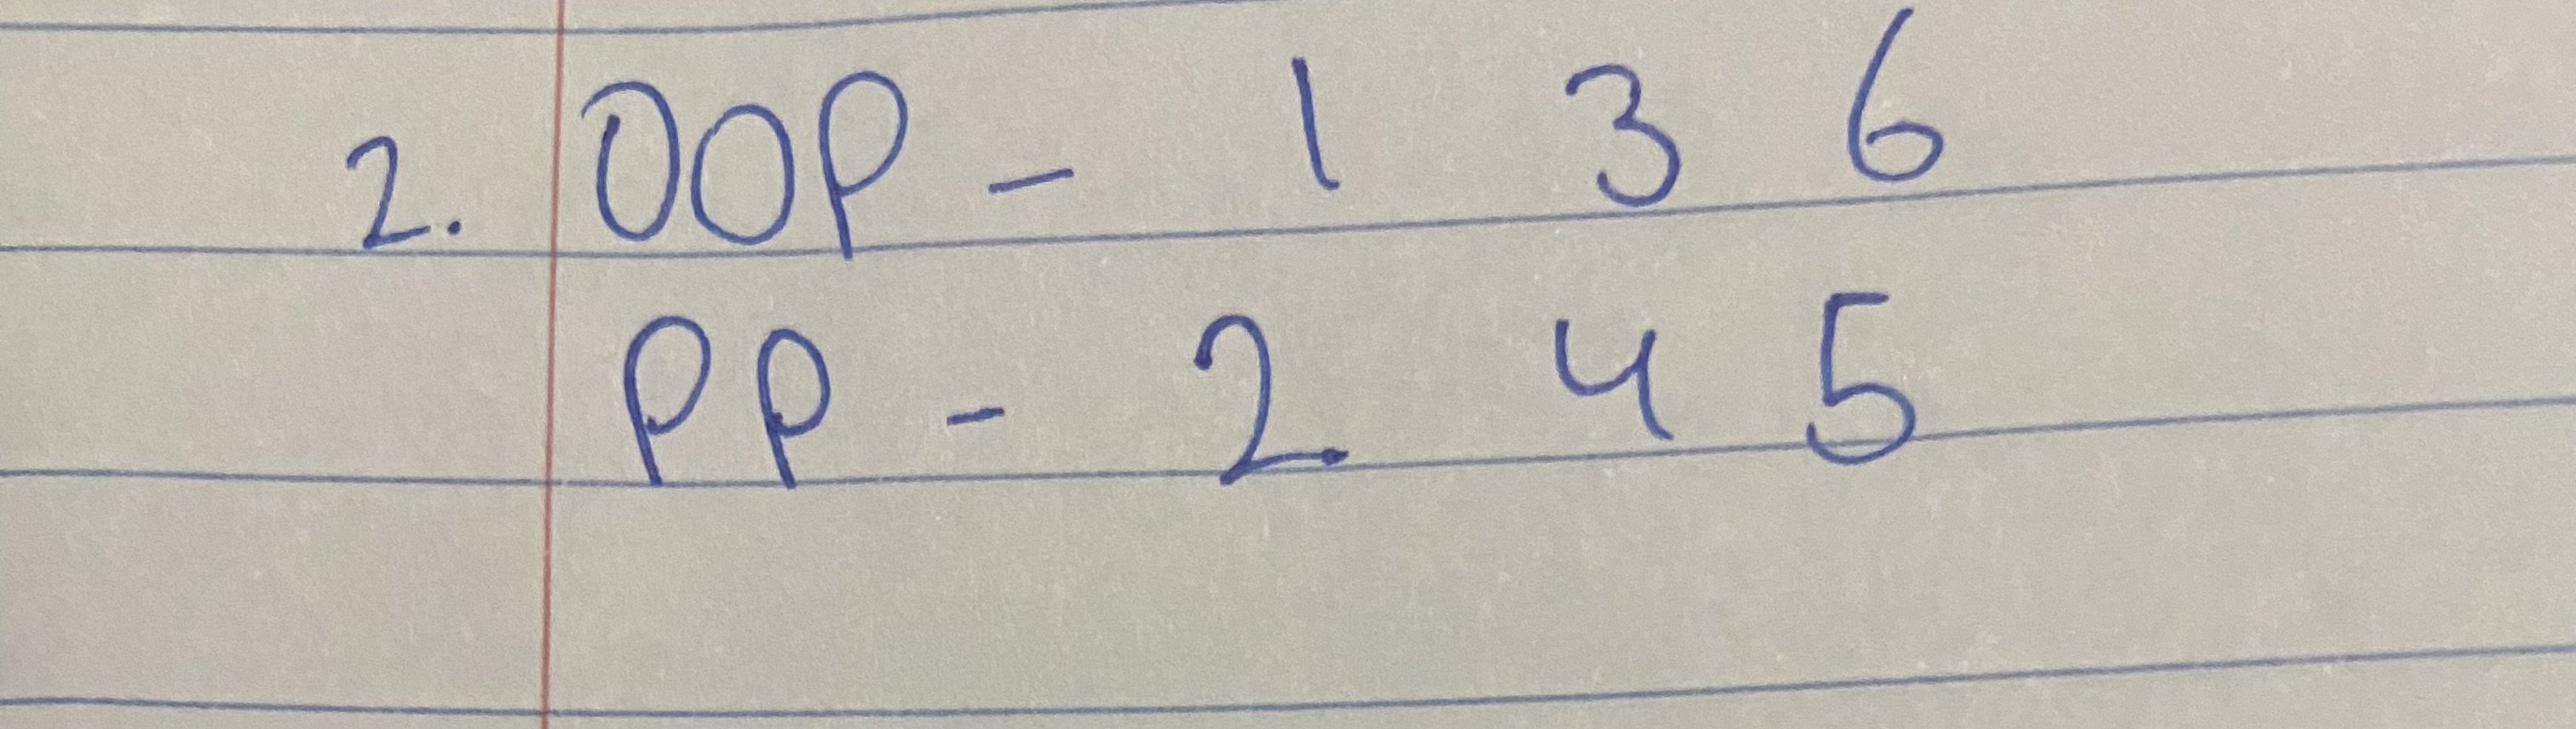 2. OOP - 1 3 6
PP - 2. 4 5